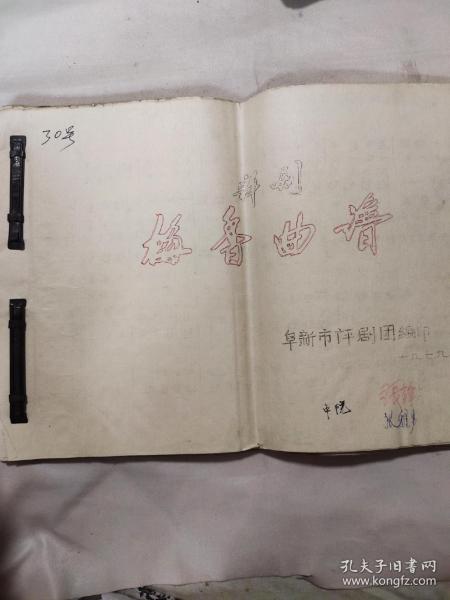 30号
评剧
梅香曲谱
阜新市评剧团编印
一九七九
孔夫子旧书网
www.kongfz.com